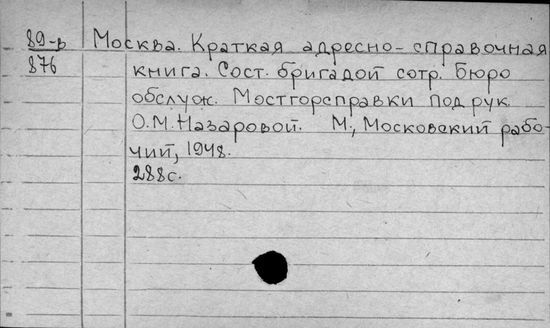 89-в Москва. Краткая адресно-справочная
876 книга. Сост. бригадой сотр. Бюро
обслуж. Мосгорсправки под рук.
О.М. Назаровой. М., Московский рабо-
чий, 1948.
288с.